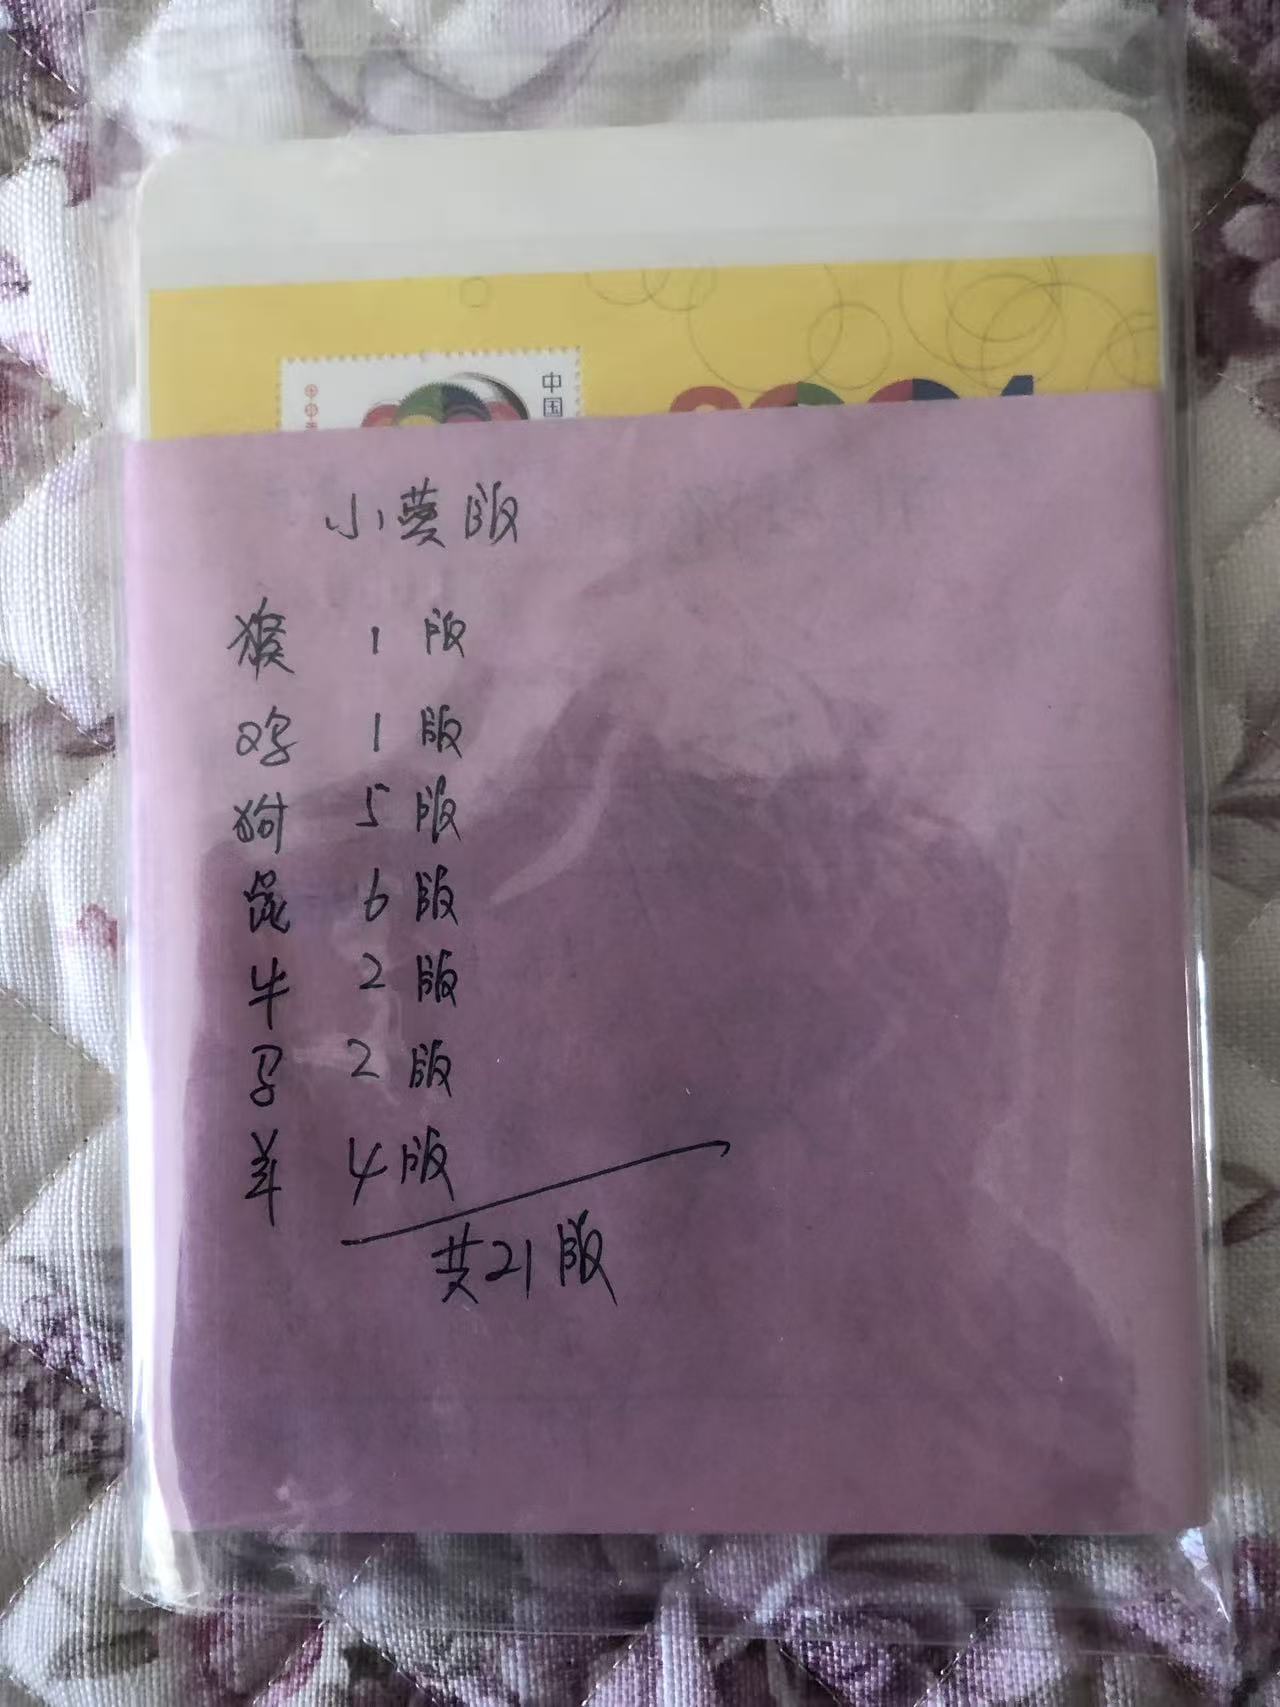 中国
小黄版
猴 1 版
鸡 1 版
狗 5 版
鼠 6 版
牛 2 版
2 版
羊 4 版
共21版